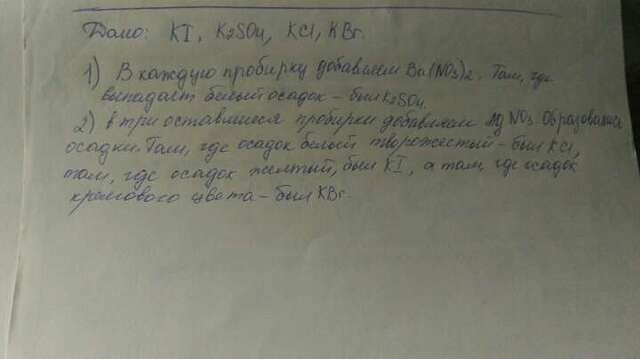 Дано: KI, K2SO4, KCl, KBr.
1) В каждую пробирку добавляем Ba(NO3)2. Там, где
выпадает белый осадок - был K2SO4.
2) в три оставшиеся пробирки добавляем AgNO3. Образовались
осадки. Там, где осадок белый творожестый - был KCl,
там, где осадок желтый, был KI, а там, где осадок
кремового цвета - был KBr.